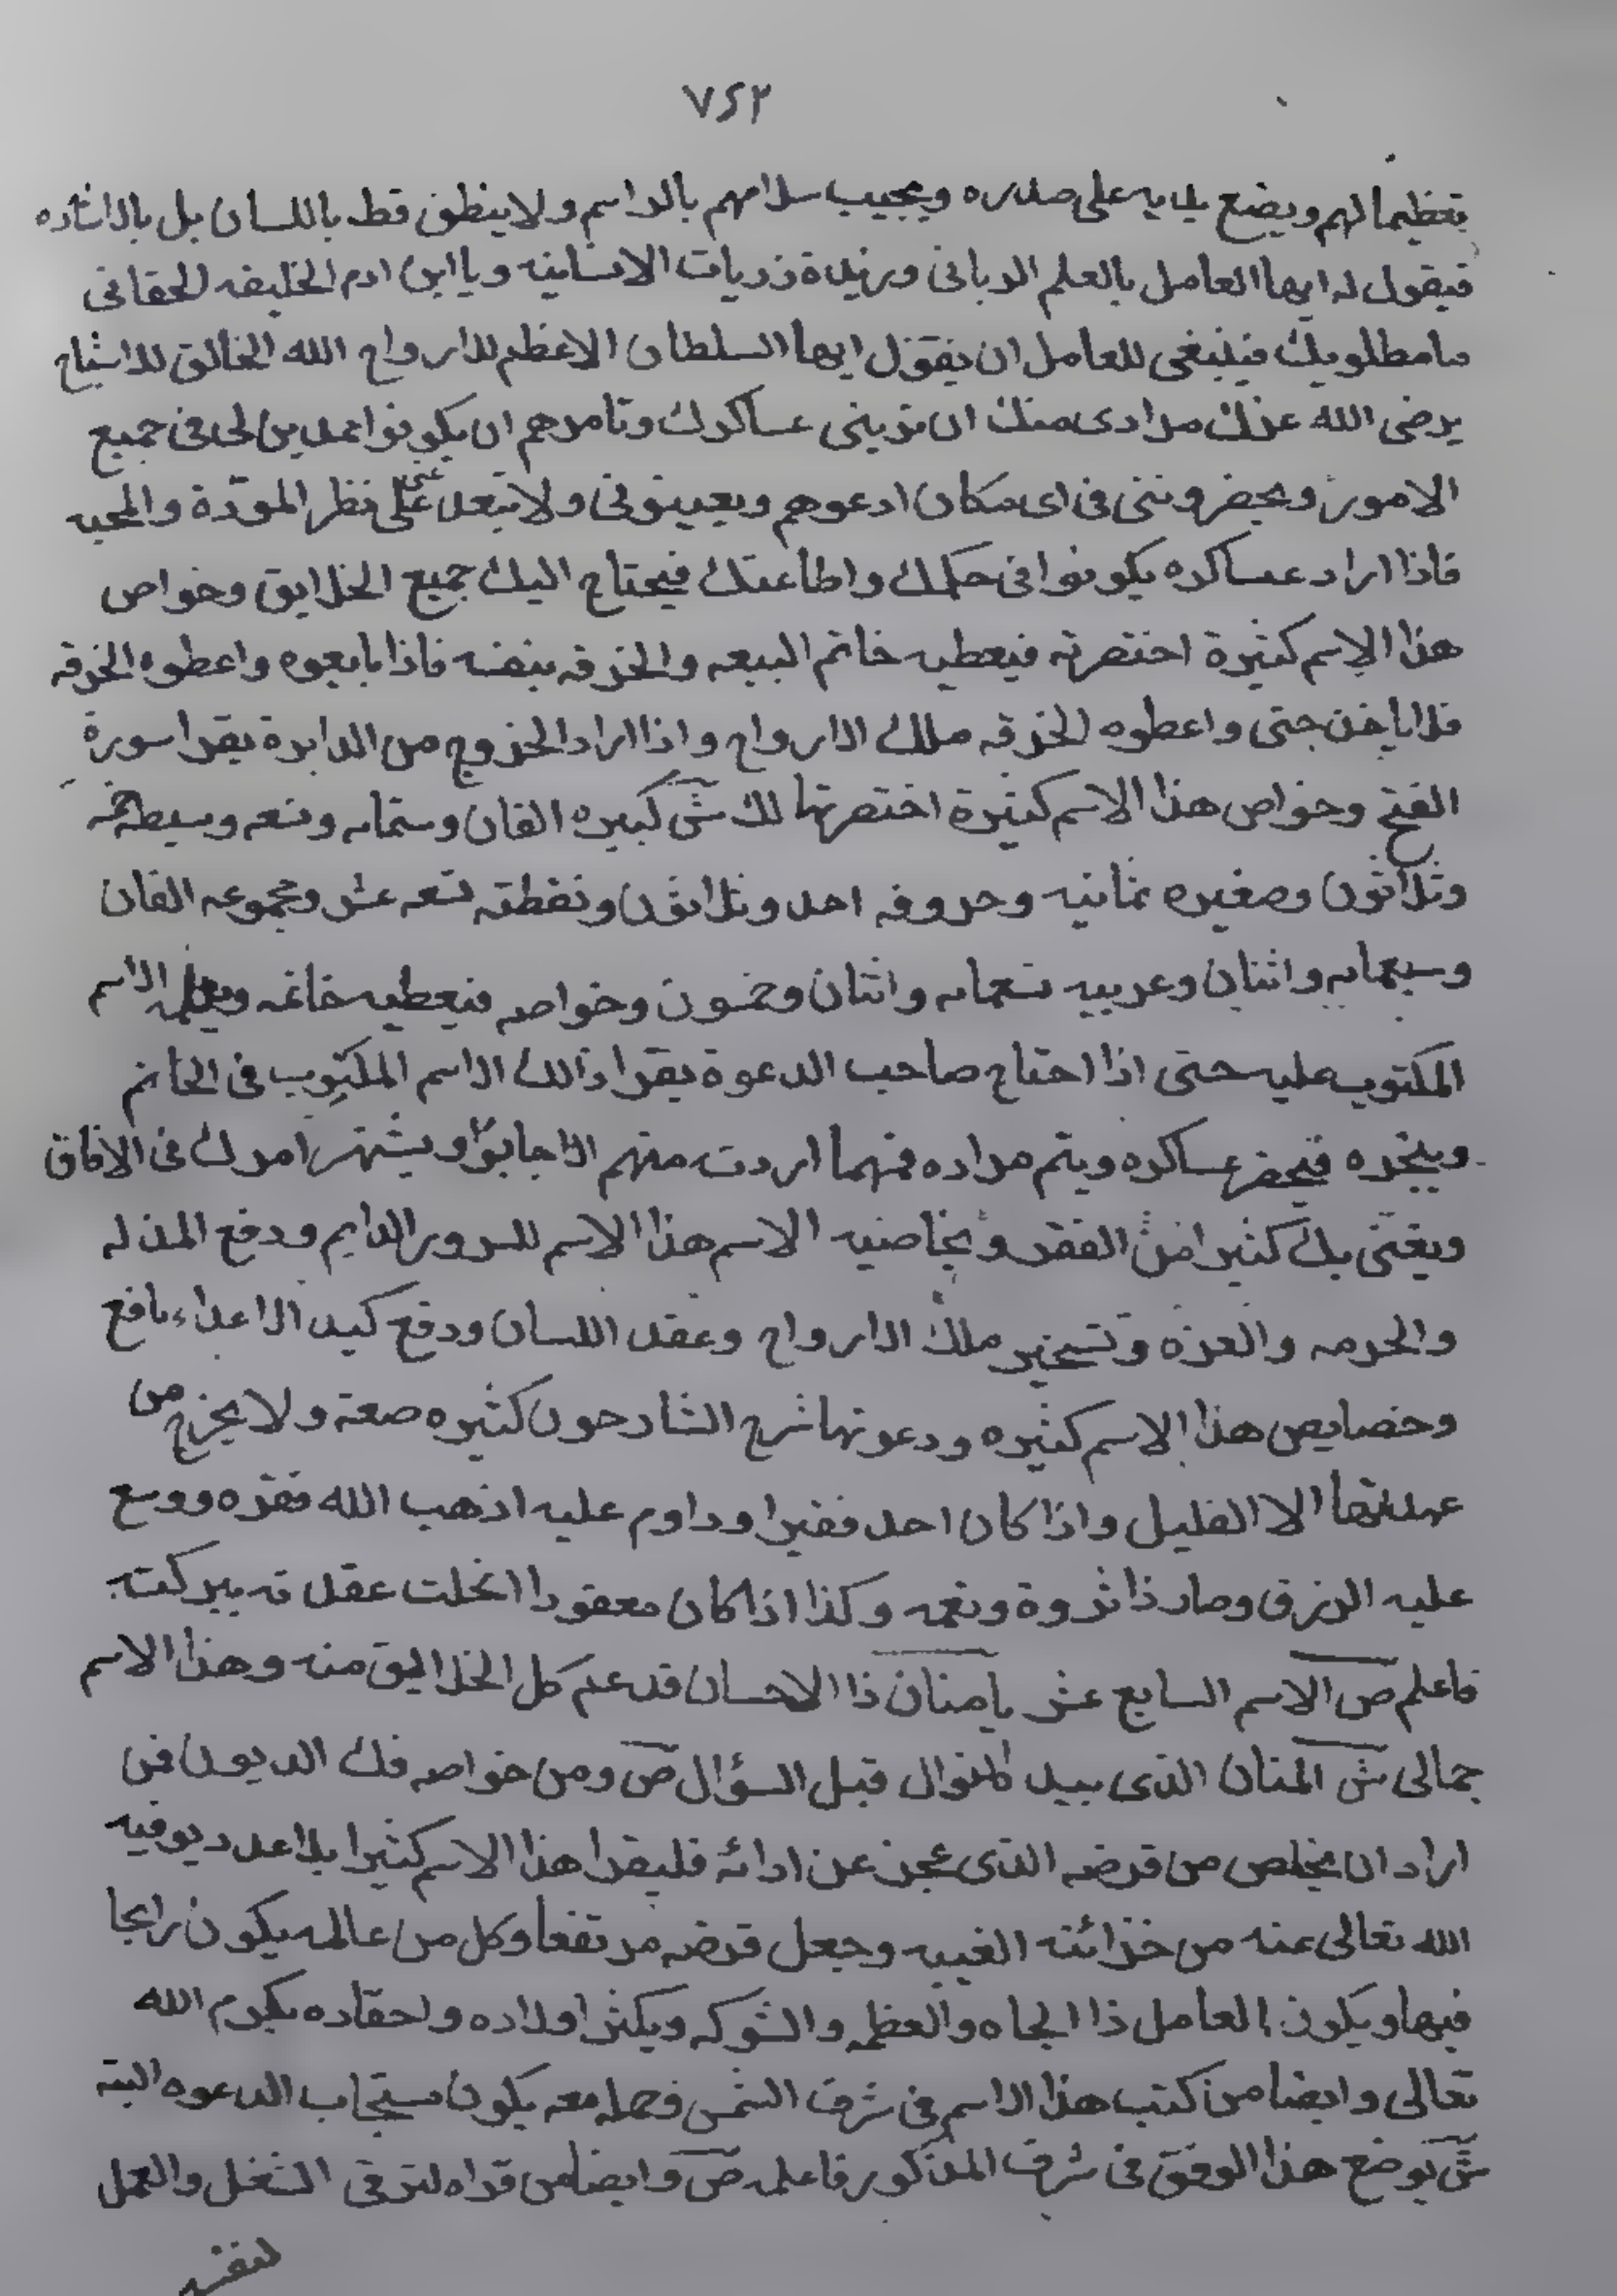 ٧٤٢
تعظيما لهم ويضع يديه على صدره ويجيب سلامهم بالراسم ولا ينطق قط باللسان بل بالاشاره
فيقول له ايها العامل بالعلم الرباني وزبدة ذريات الانسانيه ويا ابن ادم الخليفه الحقاني
ما مطلوبك فينبغي للعامل ان يقول ايها السلطان الاعظم للارواح الله الخالق للاشباح
يرضى الله عنك مرادى منك ان تريني عساكرك وتامرهم ان يكونوا ممدين لى في جميع
الامور ويحضرونني في اى مكان ادعوهم ويعينوني ولا تبعد عني نظر المودة والمحبه
فاذا اراد عساكره يكونوا في حكمك واطاعتك فيحتاج اليك جميع الخلايق وخواص
هذا الاسم كثيرة اختصرته فيعطيه خاتم البيعه والخرقه بنفسه فاذا بايعوه واعطوه الخرقه
فلا ياخذ حتى واعطوه الخرقه ملك الارواح واذا اراد الخروج من الدايرة يقرا سورة
الفتح وخواص هذا الاسم كثيرة اختصرتها لك ش كبيره الفان وستمايه وتسعه وبسيطه خمسه
وثلاثون وصغيره ثمانيه وحروفه احد وثلاثون ونقطته تسعه عشر ومجموعه الفان
وسبعمايه واثنان وعربيه تسعمايه واثنان وخمسون وخواصه فيعطيه خاتمه ويعلمه الاسم
المكتوب عليه حتى اذا احتاج صاحب الدعوة يقرا ذالك الاسم المكتوب في الخاتم
ويبخره فيحضر عساكره ويتم مراده فمهما اردت منهم الا اجابوا ويشتهر امرك في الافاق
ويغتني بك كثيرا من الفقر وبخاصيه الاسم هذا الاسم للسرور الدايم ودفع المذله
والحرمه والعزه وتسخير ملك الارواح وعقد اللسان ودفع كيد الاعداء نافع
وخصايص هذا الاسم كثيره ودعوتها شرح الشارحون كثيره صعة ولا يخرج من
عهدتها الا القليل واذا كان احد فقيرا وداوم عليه اذهب الله فقره ووسع
عليه الرزق وصار ذا ثروة ونعمه وكذا اذا كان معقودا انحلت عقدته ببركته
فاعلم ص الاسم السابع عشر يا منان ذا الاحسان قد عم كل الخلايق منه وهذا الاسم
جمالى ش المنان الذى يبيد النوال قبل السؤال ص ومن خواصه فك الديون فمن
اراد ان يخلص من قرضه الذى عجز عن ادائه فليقرا هذا الاسم كثيرا بلا عدد يوفيه
الله تعالى عنه من خزائنه الغيبيه وجعل قرضه مرتفعا وكل من عالمه يكون رايجا
فيها ويكون العامل ذا الجاه والعظمه والشوكه ويكثر اولاده واحفاده بكرم الله
تعالى وايضا من كتب هذا الاسم في شرف الشمس وحمله معه يكون مستجاب الدعوه البته
ش يوضع هذا الوفق في شرف المذكور فاعلمه ص وايضا من قراه لترقى الشغل والعمل